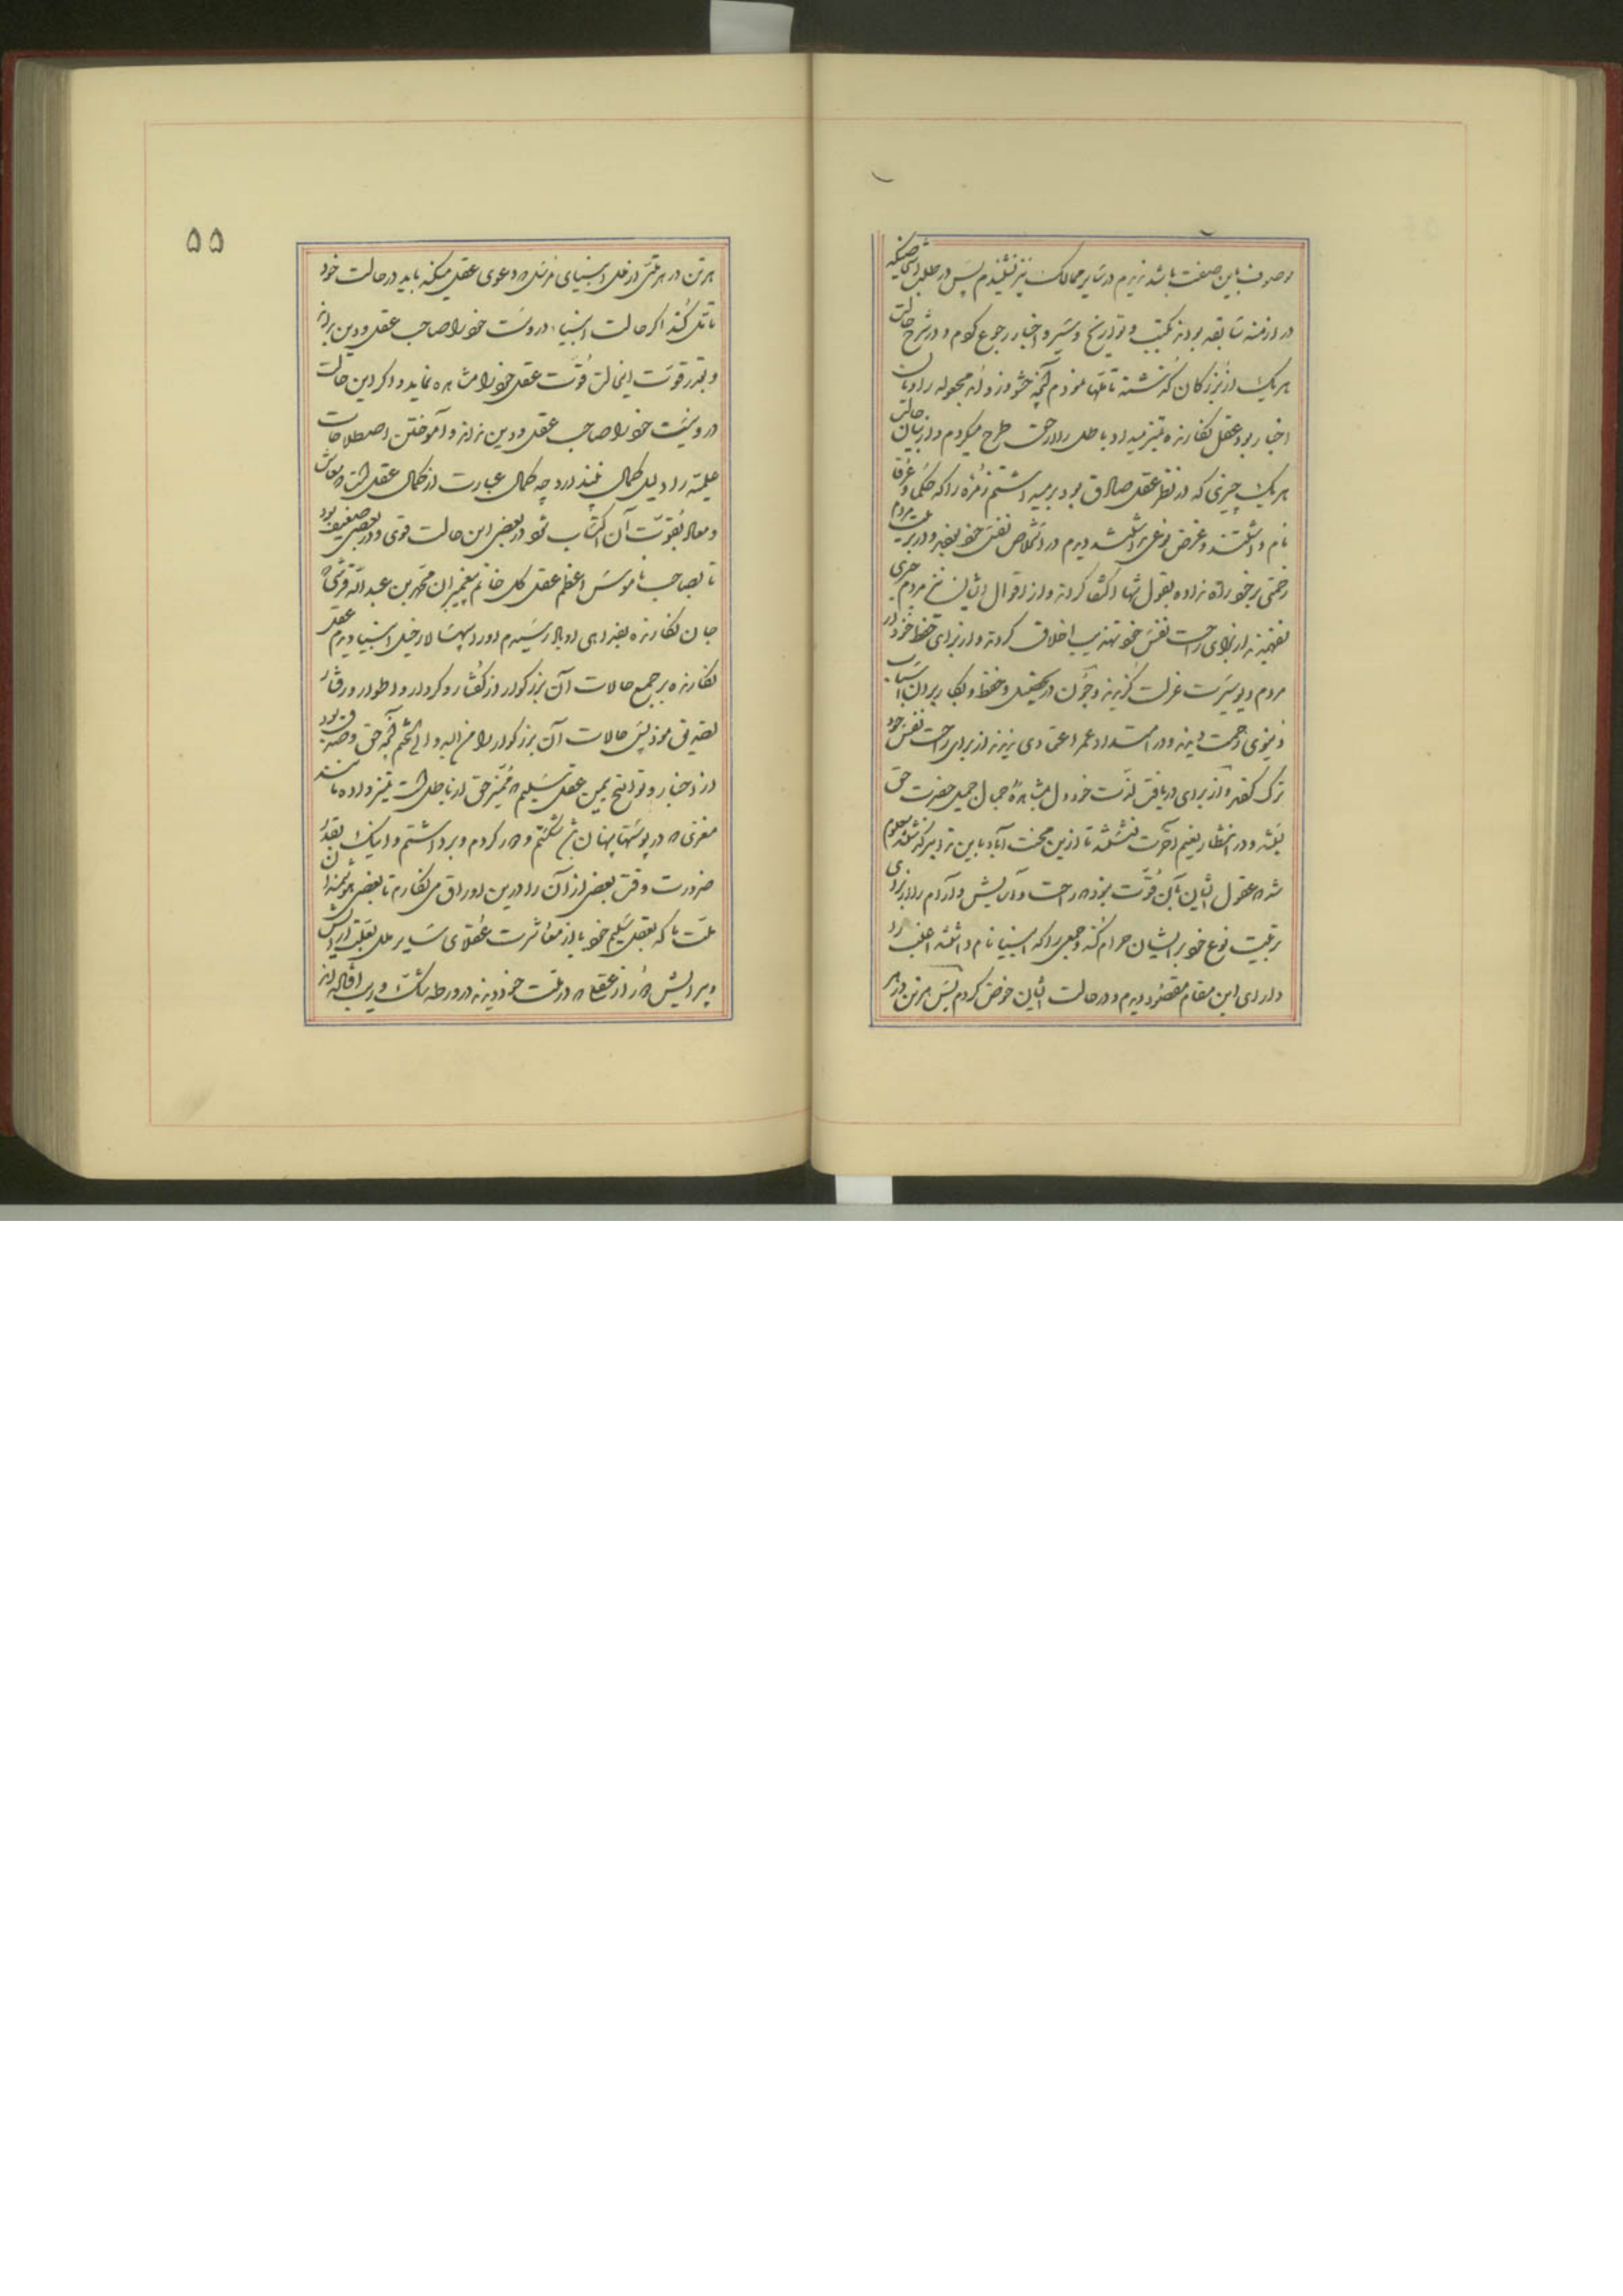 موصوف باین صفت باشد ندیدم در سایر ممالک نیز نشنیدم پس در طلب اشخاصیکه
در ازمنه سابقه بودند بکتب و تواریخ و سیر و اخبار رجوع کردم و در شرح حالت
هر یک از بزرگان گذشته تأملها نمودم آنچه حشو و زوائد مجعوله راویان
اخبار بود عقل نگارنده تمیز میداد باطل را از حق طرح میکردم و از بیان حالت
هر یک چیزی که در نظر عقل صادق بود برمیداشتم زمره را که حکما و عرفا
نام داشتند و غرض نوعی نداشتند دیدم در استخلاص نفس خود بوده و در تربیت مردم
زحمتی بر خود راه نداده بقول تنها اکتفا کردند و از اقوال ایشان نیز مردم چیزی
نفهمیدند از برای راحت نفس خود تهذیب اخلاق کردند و از برای حفظ خود از
مردم دیو سیرت عزلت گزیدند و چون در تحصیل و حفظ و بکار بردن اسباب
دنیوی زحمت دیدند و در امتداد عمر اعتمادی ندیدند از برای راحت نفس خود
ترک گفتند و از برای دریافتن لذت خود دل بمشاهده جمال جمیل حضرت حق
بستند و در انتظار نعیم آخرت نشستند تا ازین محنت آباد باین تدابیر گذشتند معلوم
شد که عقول ایشان بآن قوت نبود که راحت و آسایش و آرام را از برای
تربیت نوع خود بر ایشان حرام کند و جمعی را که انبیا نام داشتند اغلب را
دارای این مقام مقصود دیدم و در حالت ایشان خوض کردم پس هر تن در هر
۵۵
هر تن در هر ملتی از ملل انبیای مرسل که دعوی عقل میکند باید در حالت خود
تأمل کند اگر حالت انبیا در اوست خود را صاحب عقل و دین بداند
و بقدر قوت اینحالت قوت عقل خود را مشاهده نماید و اگر این حالت
در او نیست خود را صاحب عقل و دین نداند و آموختن اصطلاحات
علمیه را دلیل کمال نپندارد چه کمال عبارت از کمال عقل است که معاش
و معاد بقوت آن اکتساب شود در بعضی این حالت قوی و در بعضی ضعیف بود
تا بصاحب ناموس اعظم عقل کل خاتم پیغمبران محمد بن عبدالله قرشی که
جان نگارنده بفدای او باد رسیدم او را سپهسالار خیل انبیا دیدم عقل
نگارنده بر جمیع حالات آن بزرگوار از گفتار و کردار و اطوار و رفتار
تصدیق نمود پس حالات آن بزرگوار را من البدو الی الختم آنچه حق و صدق بود
از اخبار و تواریخ بیمن عقل سلیم که ممیز حق از باطل است تمیز داده مانند
مغزی که در پوستها پنهان باشد شکستم و در کردم و برداشتم و اینک بقدر
ضرورت وقت بعضی از آن را درین اوراق می نگارم تا بعضی هوشمندان
ملت ما که بعقل سلیم خود یا از معاشرت عقلای سایر ملل بعلت آرایش
و پیرایش که از عقلا که در ملت خود دیدند در ورطه شک و ریب افتاده اند